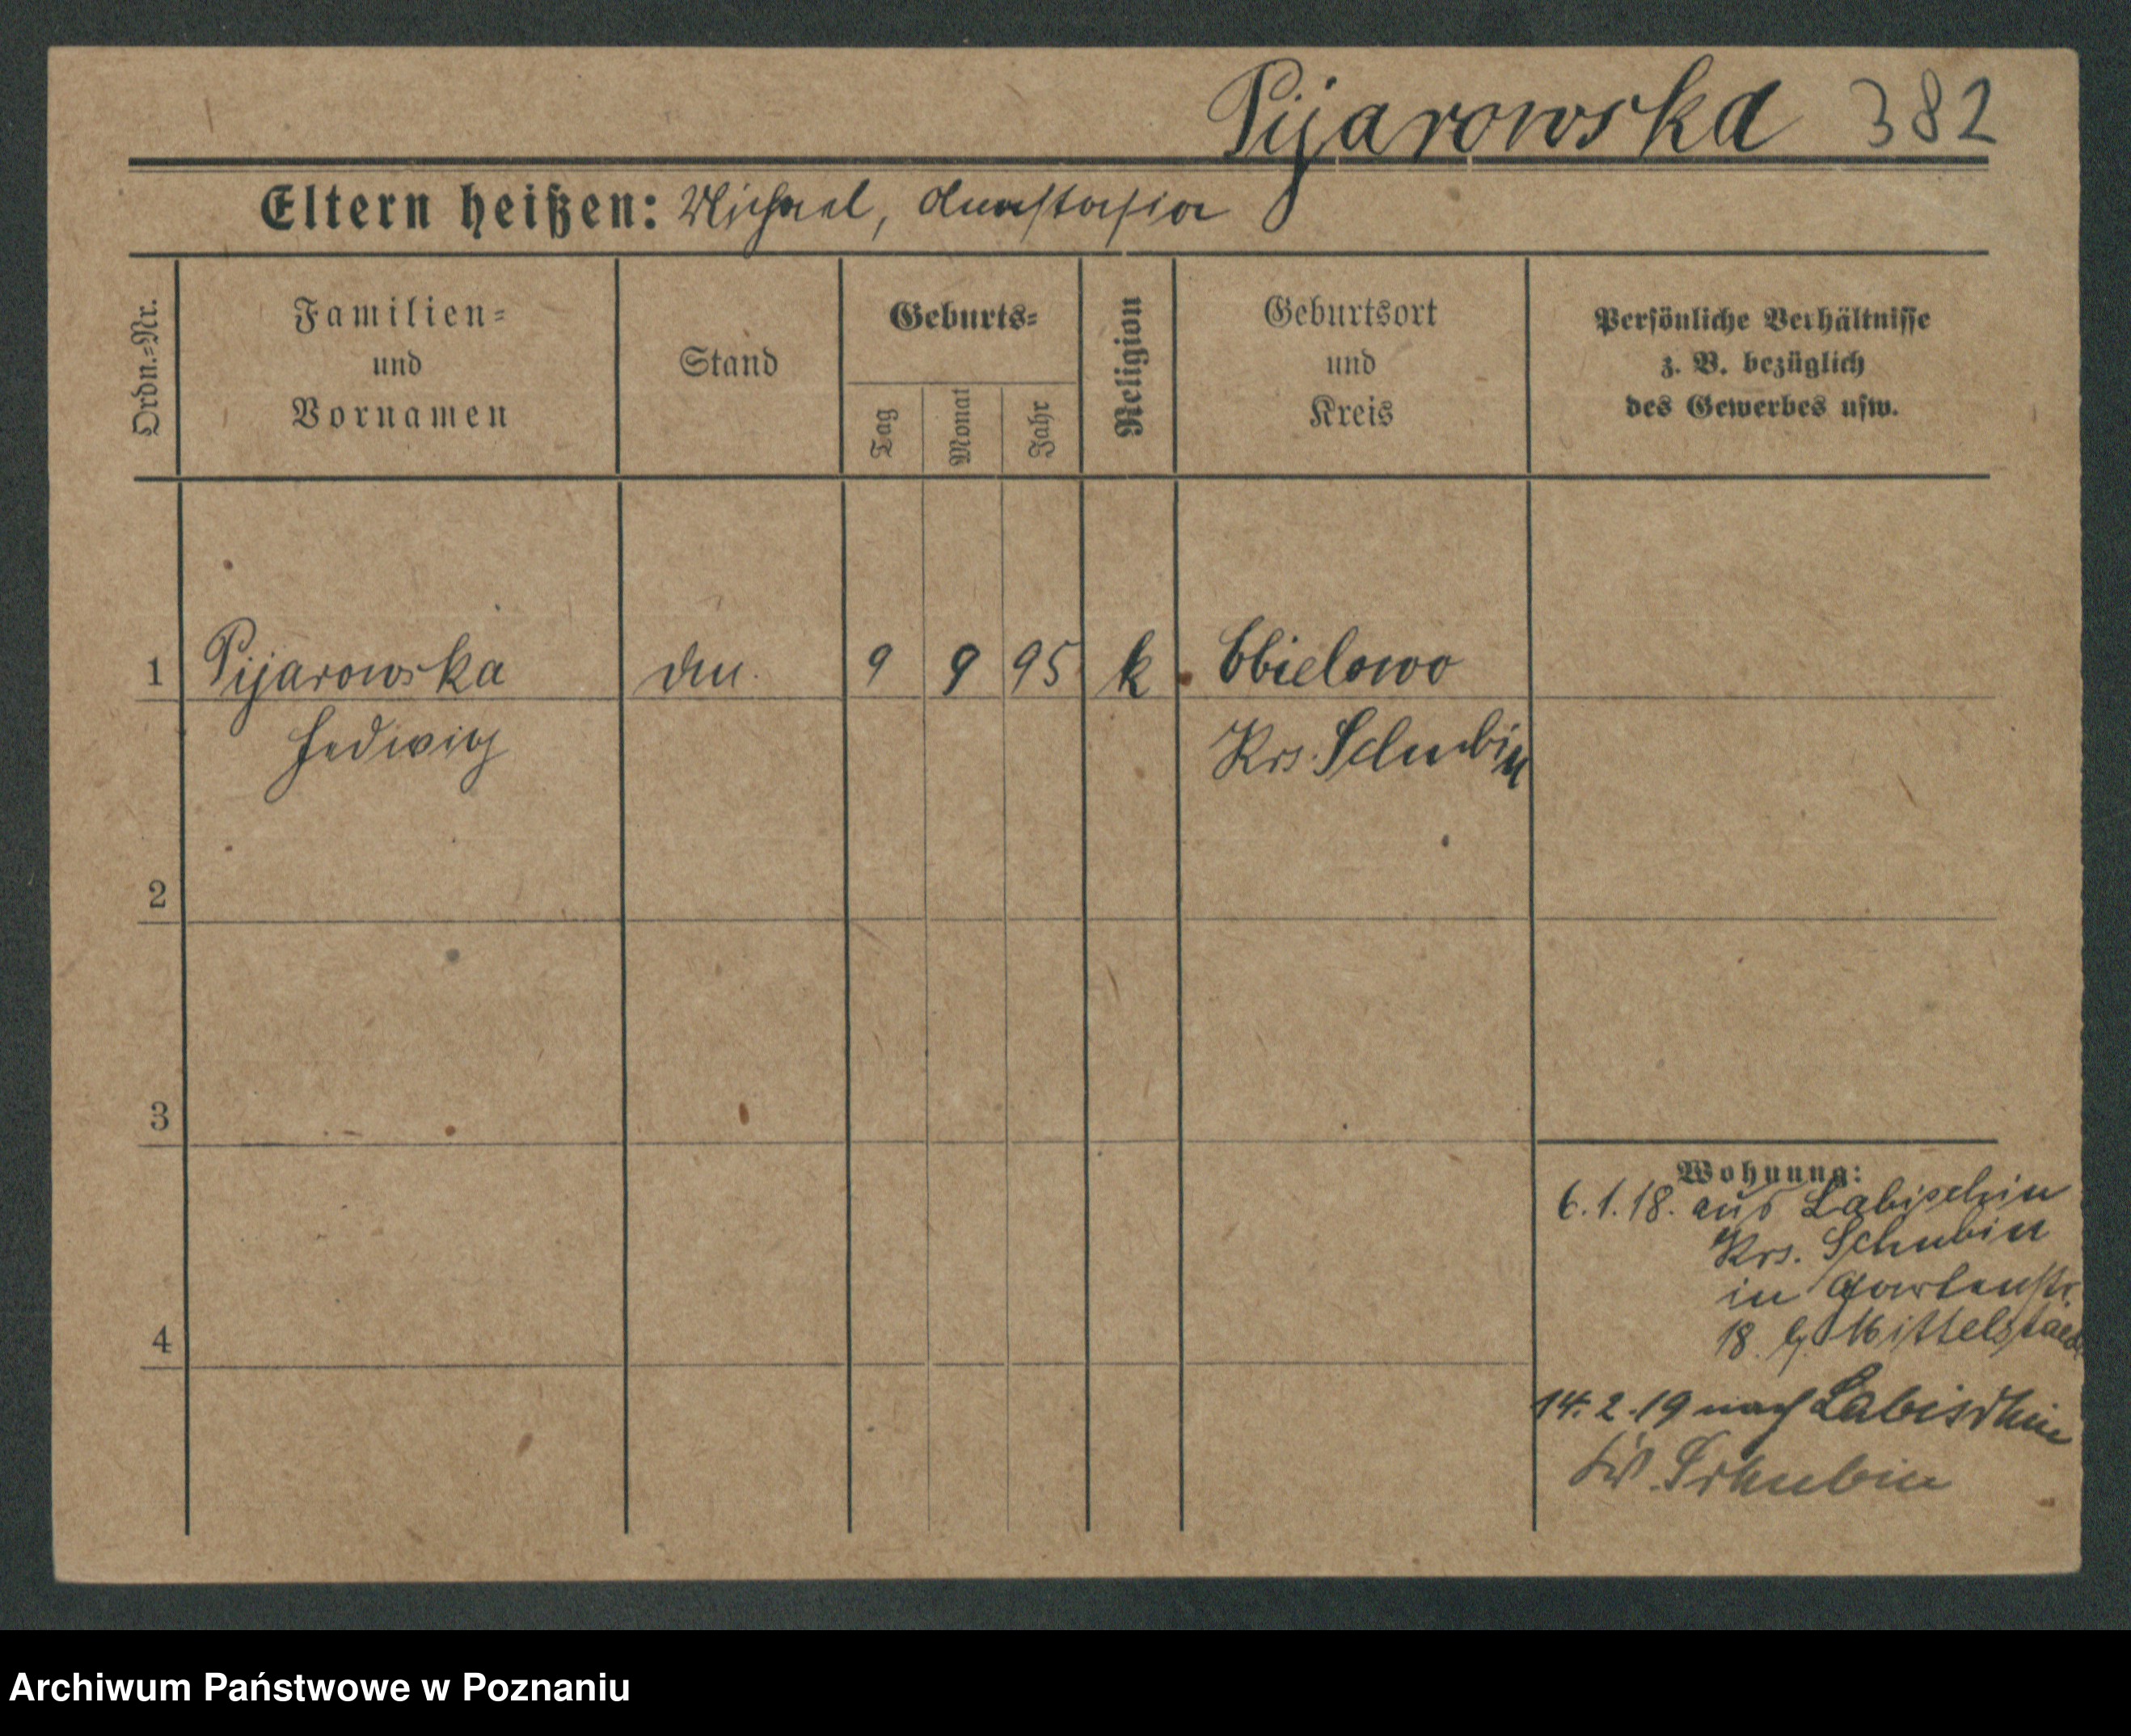 Pijarowska 382
Eltern heißen: Michael, Anastasia
Ordn.=Nr.
Familien=
und
Vornamen
Stand
Geburts=
Tag
Monat
Jahr
Religion
Geburtsort
und
Kreis
Persönliche Verhältnisse
z. B. bezüglich
des Gewerbes usw.
1 Pijarowska 9 9 95 k
Krs. Schubin
Hedwig
2
3
4
Wohnung:
6.1.18. aus Labischin
Krs. Schubin
in Gartenstr.
18 b. Mittelstaedt
14.2.19 nach Labischin
Schubin
Archiwum Państwowe w Poznaniu